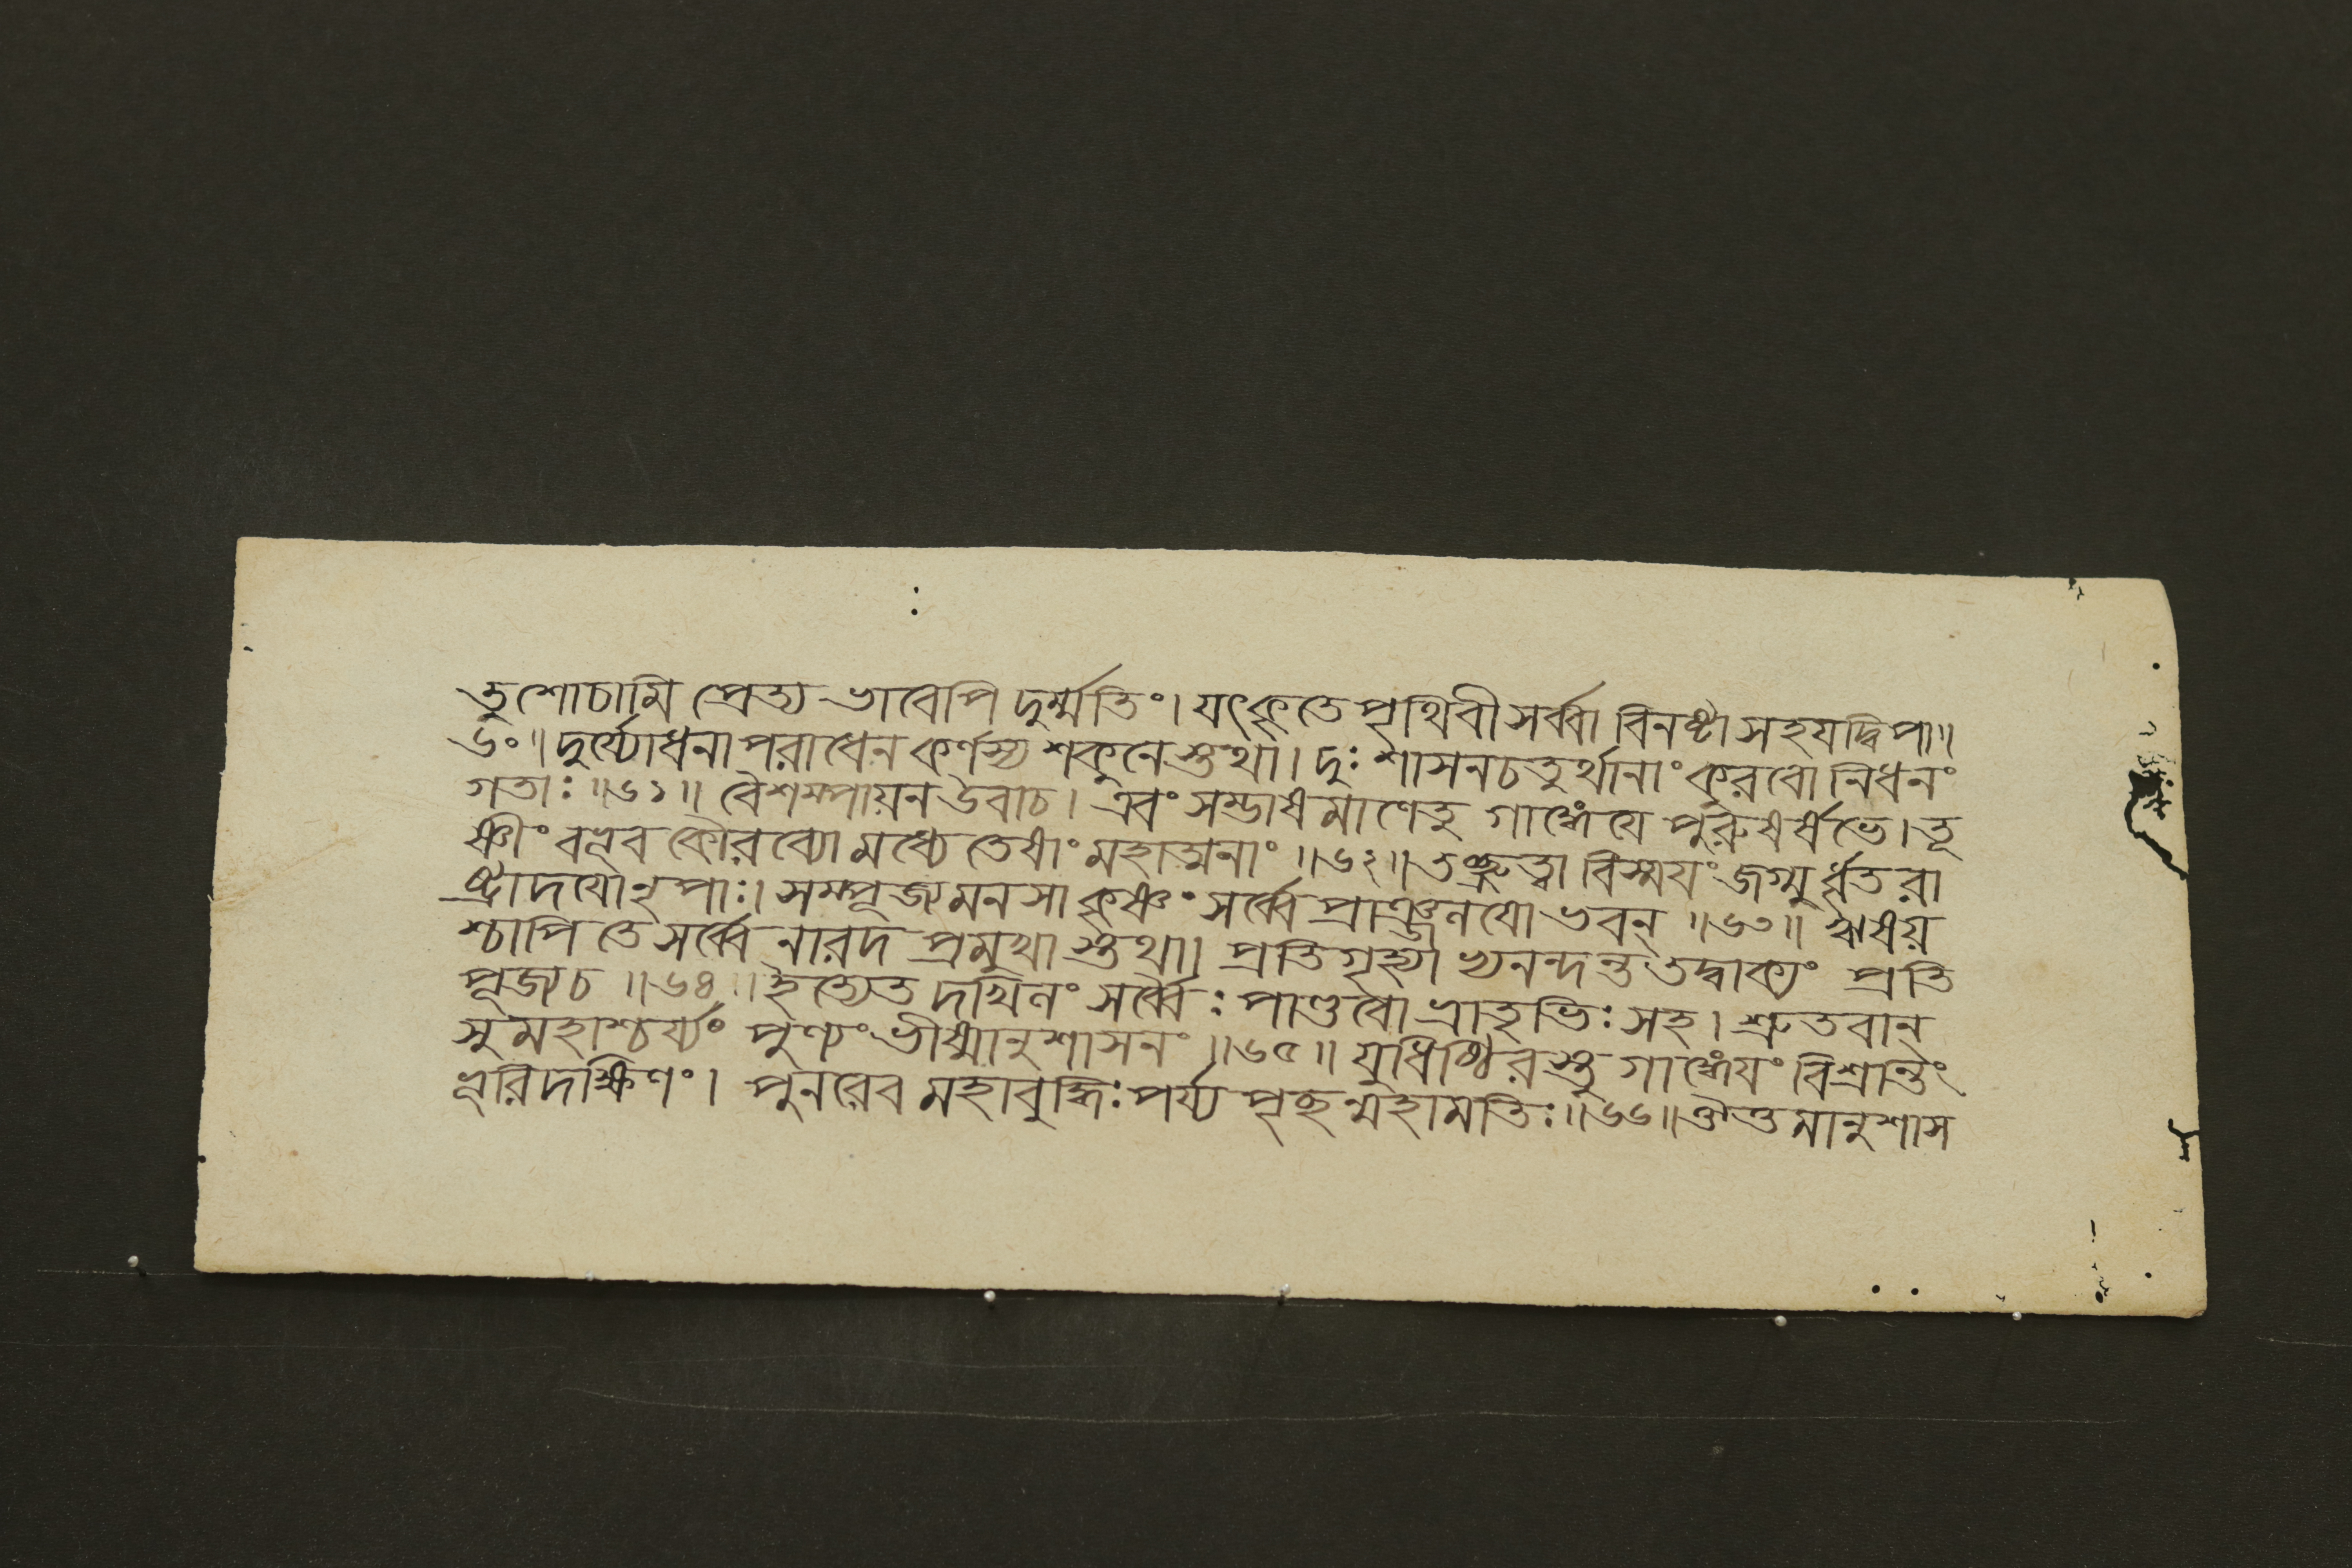 তুশোচামি প্রেত্য ভাবেপি দুর্ম্মতিং। যৎকৃতে পৃথিবী সর্ব্বা বিনষ্টা সহযদ্বিপা॥
৬০॥ দুর্য্যোধনাপরাধেন কর্ণস্য শকুনেস্তথা। দুঃশাসনচতুর্থানাং কুরবো নিধনং
গতাঃ॥৬১॥ বৈশম্পায়ন উবাচ। এবং সম্ভাষমাণেতু গাঙ্গেযে পুরুষর্ষভে। তূ
ষ্ণীং বভূব কৌরব্যো মধ্যে তেষাং মহাত্মনাং॥৬২॥ তচ্ছ্রুত্বা বিস্ময়ং জগ্মুর্ধৃতরা
ষ্ট্রাদযোনৃপাঃ। সম্পূজ্য মনসা কৃষ্ণং সর্ব্বে প্রাঞ্জলযোভবন্॥৬৩॥ ঋষয়
শ্চাপি তে সর্ব্বে নারদ প্রমুখাস্তথা। প্রতিগৃহ্যাভ্যনন্দন্ত তদ্বাক্যং প্রতি
পূজ্যচ॥৬৪॥ ইত্যেতদখিলং সর্ব্বেঃ পাণ্ডবো ভ্রাতৃভিঃ সহ। শ্রুতবান্
সুমহাশ্চর্য্যং পুণ্যং ভীষ্মানুশাসনং॥৬৫॥ যুধিষ্ঠিরস্তু গাঙ্গেযং বিশ্রান্তং
ভূরিদক্ষিণং। পুনরেব মহাবুদ্ধিঃ পর্য্যপৃচ্ছন্মহামতিঃ॥৬৬॥ ঔত্তমানুশাস